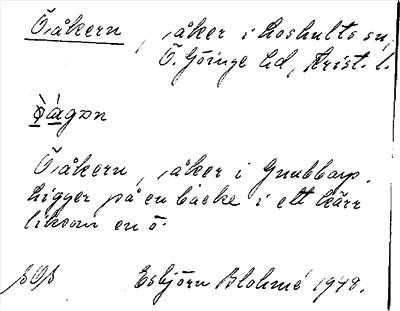 Öåkern, åker i Loshults sn,
Ö. Göinge hd, Krist. l.
Öåkern, åker i Gnubbarp.
Ligger på en backe i ett kärr
liksom en ö.
Esbjörn Blohmé 1948.